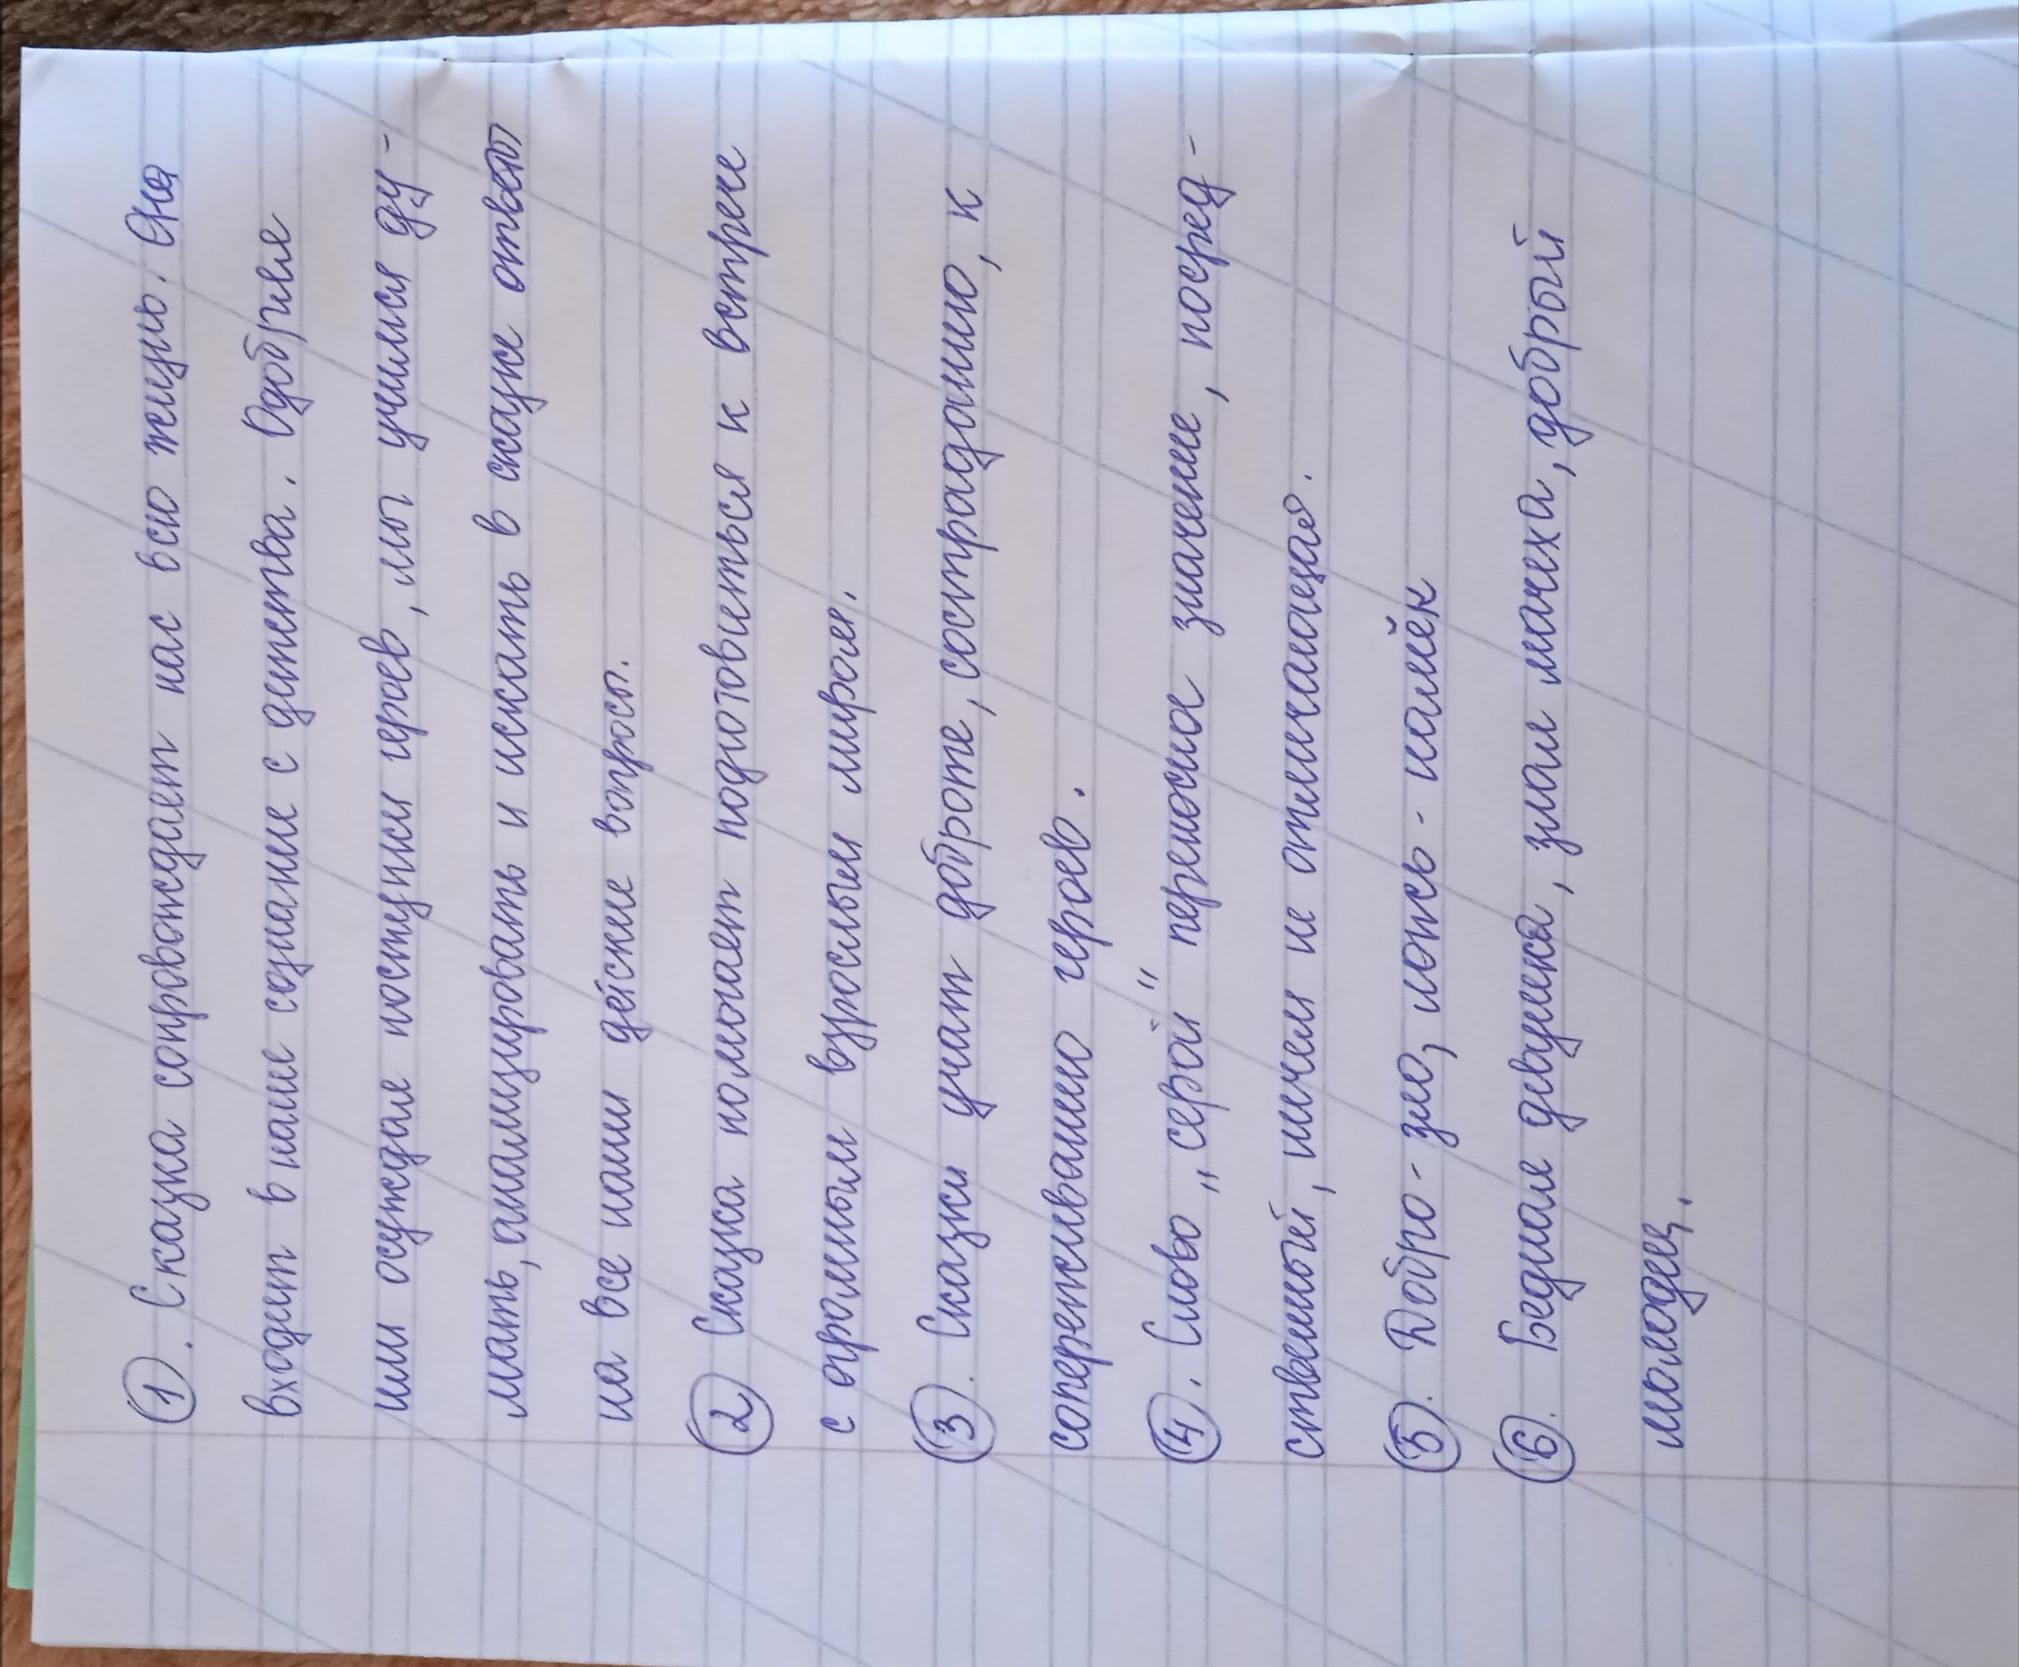 ①. Сказка сопровождает нас всю жизнь. Она
входит в наше сознание с детства. Одобряя
или осуждая поступки героев, мы учимся ду-
мать, анализировать и искать в сказке ответ
на все наши детские вопросы.
② Сказка помогает подготовиться к встрече
с огромным взрослым миром.
③. Сказки учат доброте, состраданию, к
сопереживанию героев.
④. Слово „серый" переносное значение, посред-
ственный, ничем не отличающ
⑤. Добро - зло, ложь - намёк
⑥. Бедная девушка, злая мачеха, добрый
молодец.